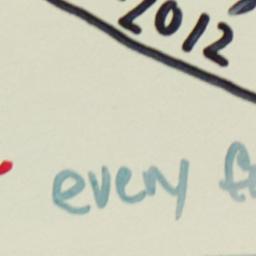 2012
every